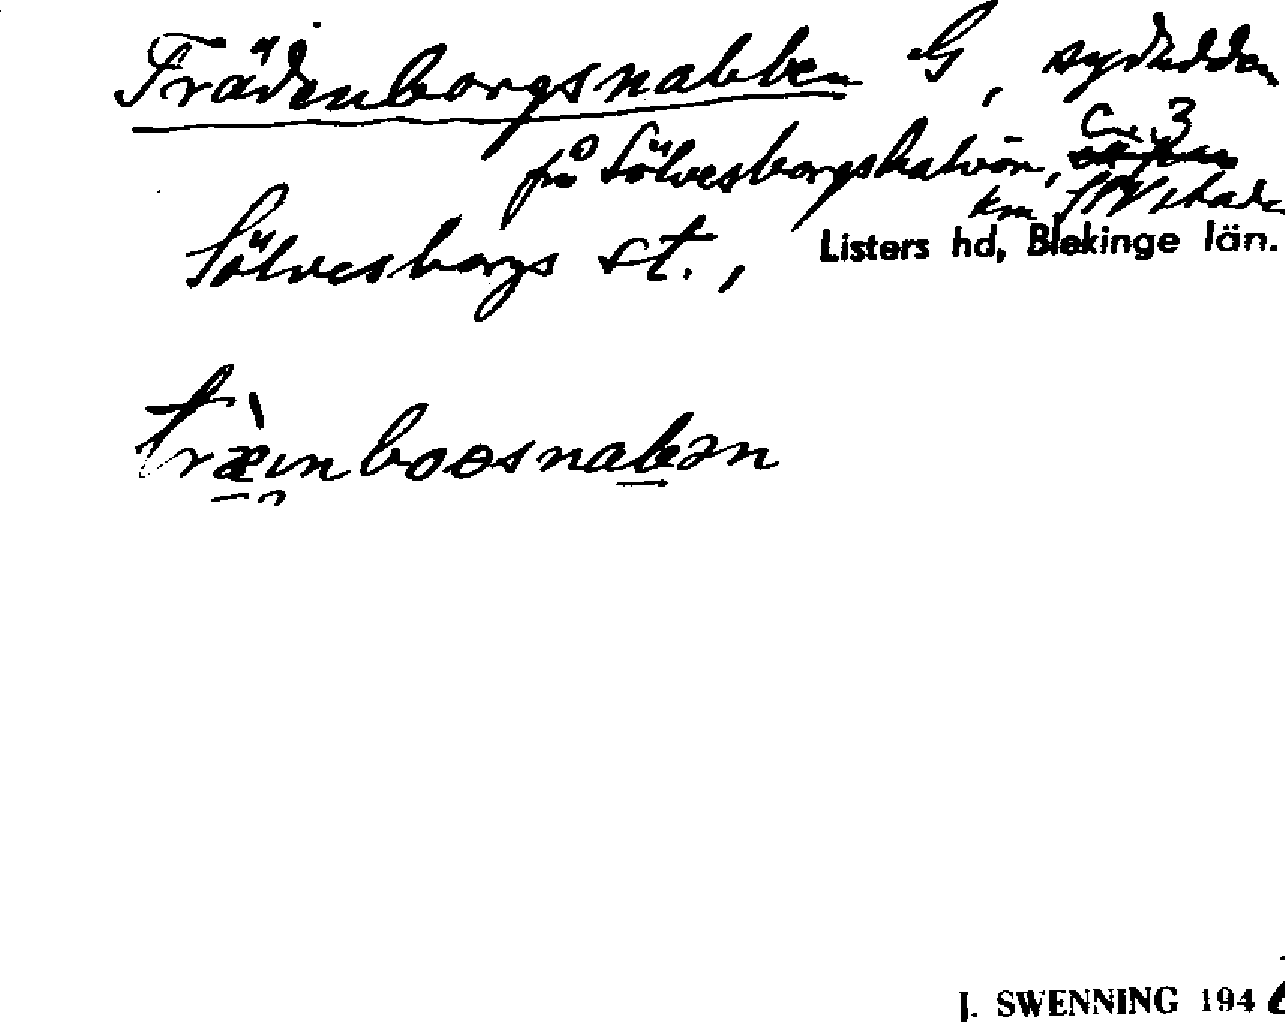 Trädenborgsnabben G, sydudden
på Sölvesborgshalvön, C. 3
km SW staden
Sölvesborgs st., Listers hd, Blekinge län.
træ̀inboosnabən
J. SWENNING 194